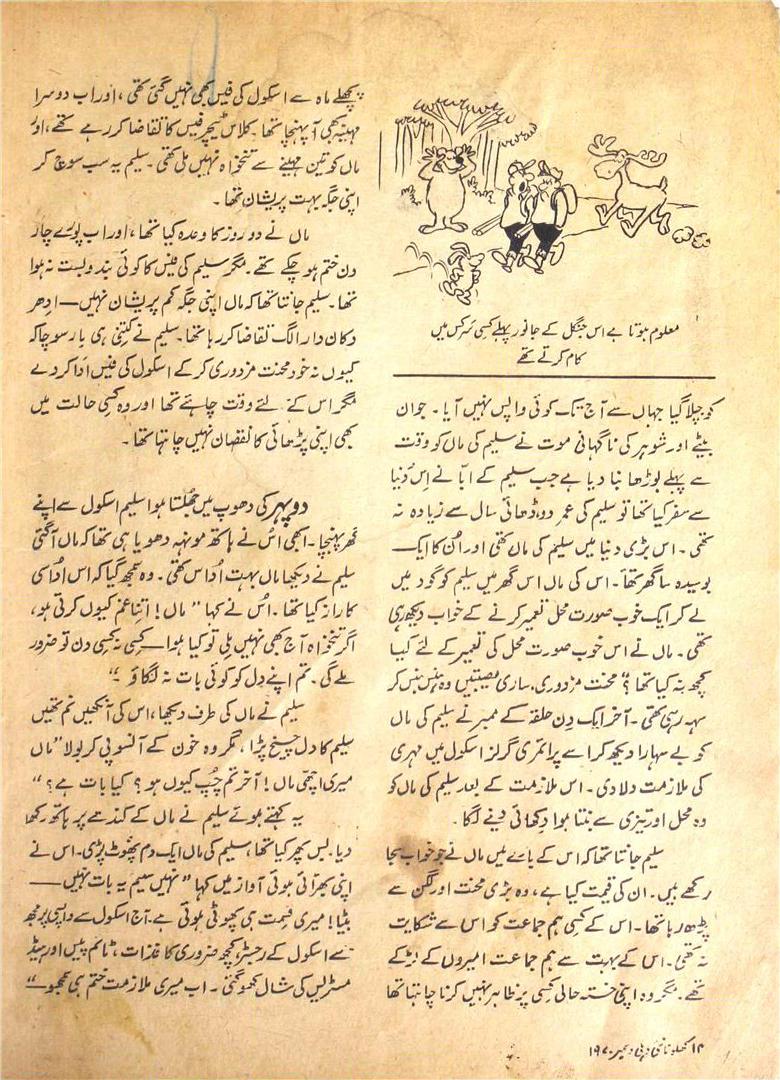 معلوم ہوتا ہے اس جنگل کے جانور پہلے کسی سرکس میں
کام کرتے تھے
کو چلا گیا جہاں سے آج تک کوئی واپس نہیں آیا۔ جوان
بیٹے اور شوہر کی ناگہانی موت نے سلیم کی ماں کو وقت
سے پہلے بوڑھا بنا دیا ہے جب سلیم کے ابّا نے اِس دُنیا
سے سفر کیا تھا تو سلیم کی عمر دو، ڈھائی سال سے زیادہ نہ
تھی۔ اس بڑی دنیا میں سلیم کی ماں تھی اور اُن کا ایک
بوسیدہ سا گھر تھا۔ اس کی ماں اس گھر میں سلیم کو گود میں
لے کر ایک خوب صورت محل تعمیر کرنے کے خواب دیکھ رہی
تھی۔ ماں نے اس خوب صورت محل کی تعمیر کے لئے کیا
کچھ نہ کیا تھا؟ محنت مزدوری، ساری مصیبتیں وہ ہنس ہنس کر
سہہ رہی تھی۔ آخر ایک دِن حلقہ کے ممبر نے سلیم کی ماں
کو بے سہارا دیکھ کر اسے پرائمری گرلز اسکول میں مہری
کی ملازمت دلا دی۔ اس ملازمت کے بعد سلیم کی ماں کو
وہ محل اور تیزی سے بنتا ہوا دِکھائی دینے لگا۔
سلیم جانتا تھا کہ اس کے بارے میں ماں نے جو خواب سجا
رکھے ہیں۔ ان کی قیمت کیا ہے، وہ بڑی محنت اور لگن سے
پڑھ رہا تھا۔ اس کے کسی ہم جماعت کو اس سے شکایت
نہ تھی۔ اس کے بہت سے ہم جماعت امیروں کے لڑکے
تھے۔ مگر وہ اپنی خستہ حالی کسی پر ظاہر نہیں کرنا چاہتا تھا
پچھلے ماہ سے اسکول کی فیس بھی نہیں گئی تھی، اور اب دوسرا
مہینہ بھی آ پہنچا تھا۔ کلاس ٹیچر فیس کا تقاضا کر رہے تھے، اور
ماں کو تین مہینے سے تنخواہ نہیں ملی تھی۔ سلیم یہ سب سوچ کر
اپنی جگہ بہت پریشان تھا۔
ماں نے دو روز کا وعدہ کیا تھا، اور اب پورے چار
دن ختم ہو چکے تھے۔ مگر سلیم کی فیس کا کوئی بندوبست نہ ہوا
تھا۔ سلیم جانتا تھا کہ ماں اپنی جگہ کم پریشان نہیں — ادھر
دکان دار الگ تقاضا کر رہا تھا۔ سلیم نے کتنی ہی بار سوچا کہ
کیوں نہ خود محنت مزدوری کر کے اسکول کی فیس اَدا کر دے
مگر اس کے لئے وقت چاہئے تھا اور وہ کسی حالت میں
بھی اپنی پڑھائی کا نقصان نہیں چاہتا تھا۔
دوپہر کی دھوپ میں جھُلستا ہوا سلیم اسکول سے اپنے
گھر پہنچا۔ ابھی اُس نے ہاتھ مونہہ دھویا ہی تھا کہ ماں آ گئی
سلیم نے دیکھا ماں بہت اُداس تھی۔ وہ سمجھ گیا کہ اس اُداسی
کا راز کیا تھا۔ اُس نے کہا "ماں! اتنا غم کیوں کرتی ہو،
اگر تنخواہ آج بھی نہیں ملی تو کیا ہوا — کسی نہ کسی دن تو ضرور
ملے گی۔ تم اپنے دل کو کوئی بات نہ لگاؤ۔"
سلیم نے ماں کی طرف دیکھا، اس کی آنکھیں نم تھیں
سلیم کا دل چیخ پڑا، مگر وہ خون کے آنسو پی کر بولا "ماں
میری اچھی ماں! آخر تم چُپ کیوں ہو؟ کیا بات ہے؟"
یہ کہتے ہوئے سلیم نے ماں کے کندھے پر ہاتھ رکھ
دیا۔ بس پھر کیا تھا، سلیم کی ماں ایک دم پھُوٹ پڑی۔ اس نے
اپنی بھرّائی ہوئی آواز میں کہا "نہیں سلیم یہ بات نہیں —
بیٹا! میری قسمت ہی پھوٹی ہوئی ہے۔ آج اسکول سے واپسی پر مجھ
سے اسکول کے رجسٹر، کچھ ضروری کاغذات، ٹائم پیس اور ہیڈ
مسٹریس کی شال کھو گئی۔ اب میری ملازمت ختم ہی سمجھو —"
۱۴ کھلونا نئی دہلی دسمبر ۱۹۷۰